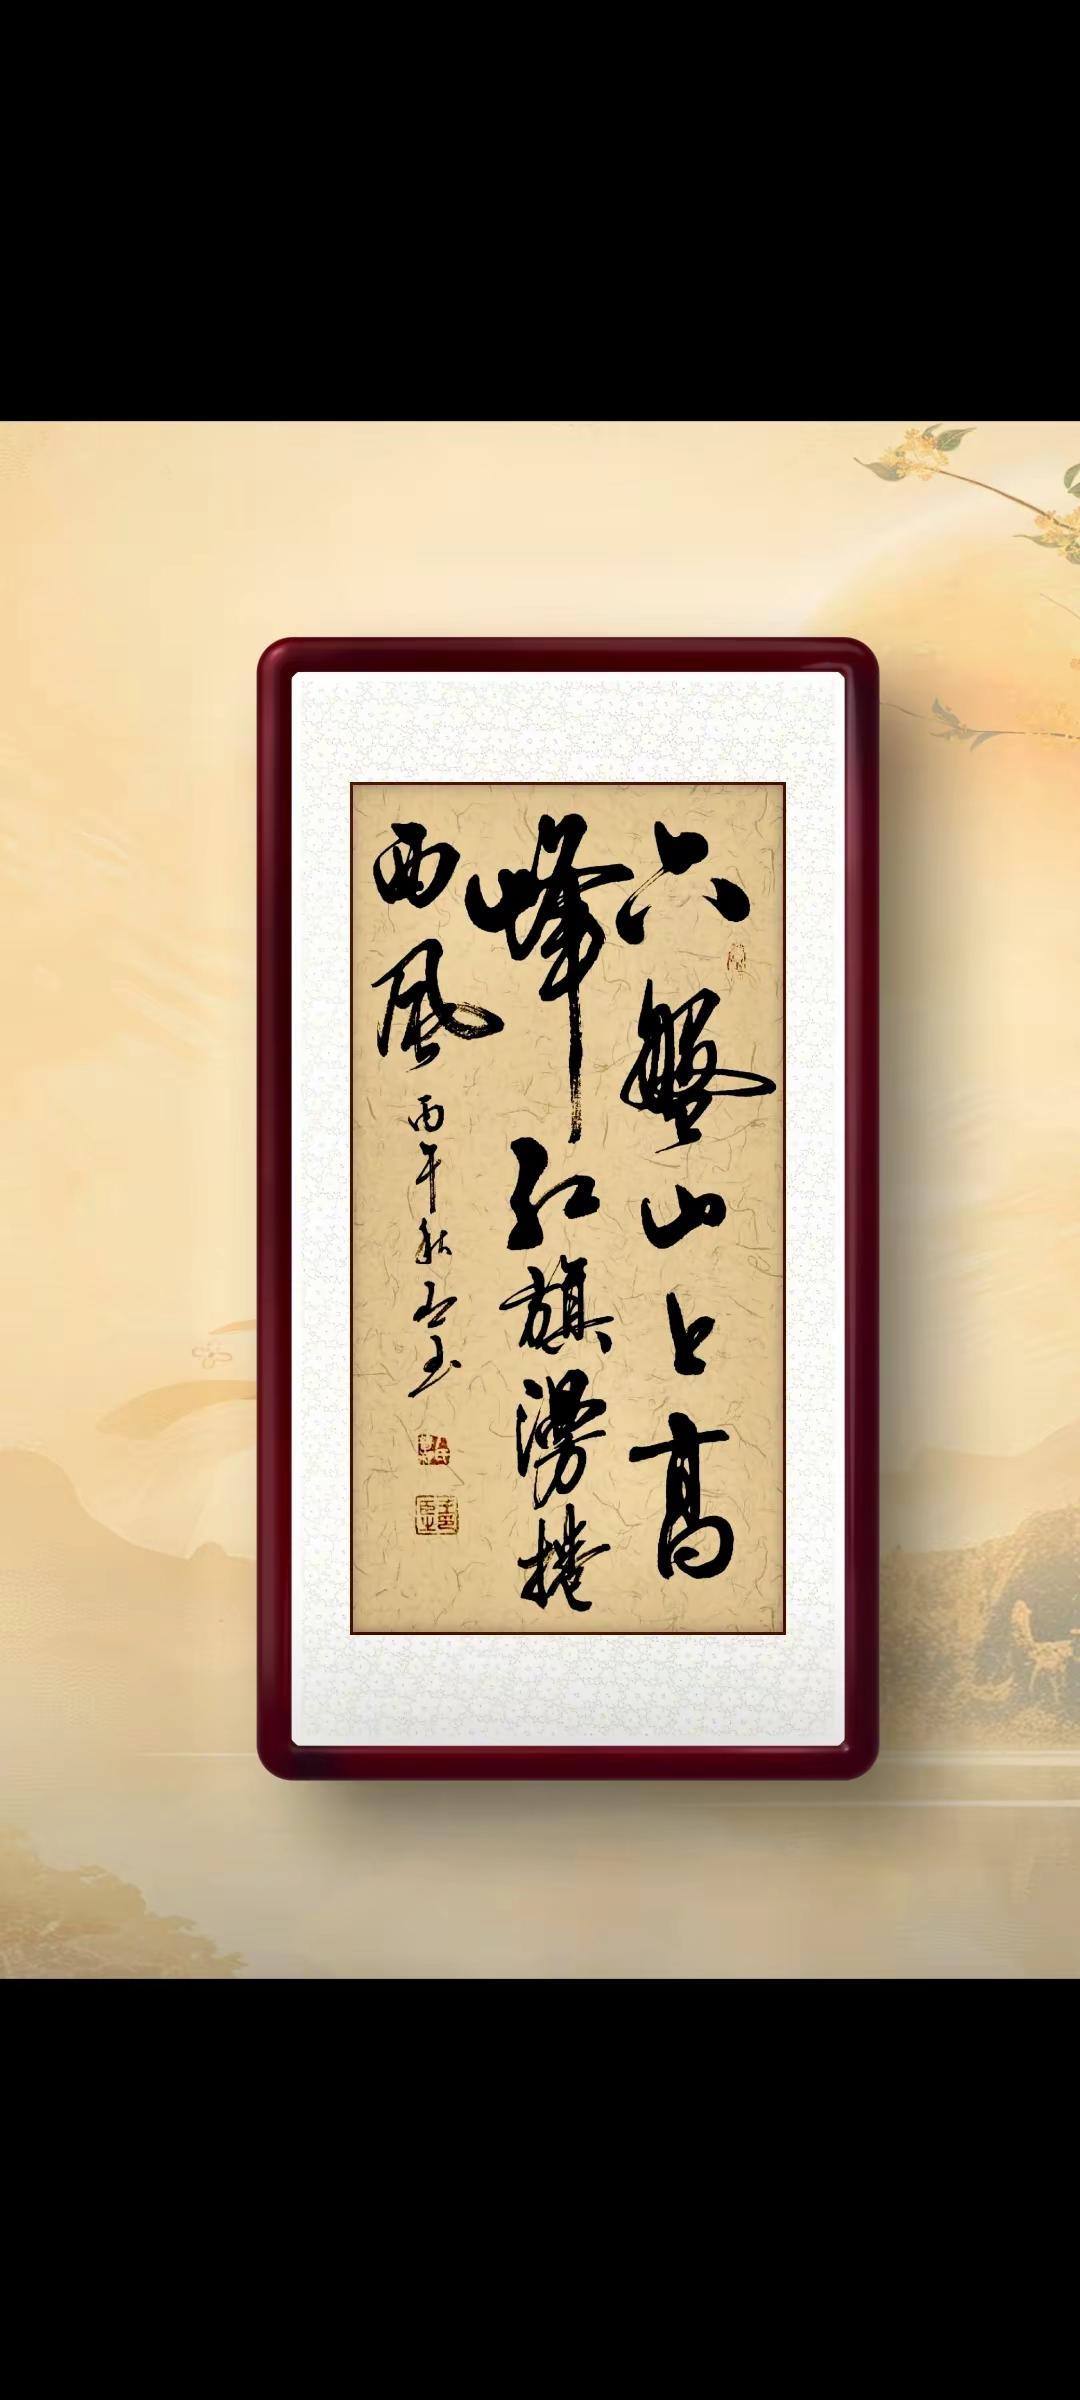 六盤山上高
峰紅旗漫捲
西風
丙午秋
玉